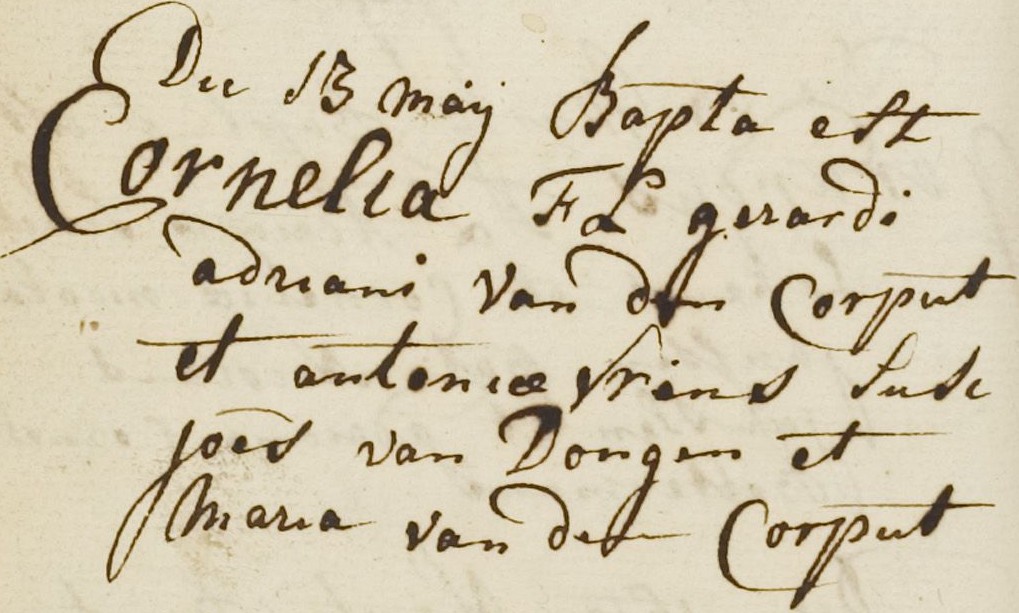 Die 13 maij Bapta est
Cornelia Fa gerardi
adriani van den Corput
et antoniae Vrins Susc
joes van Dongen et
Maria van den Corput